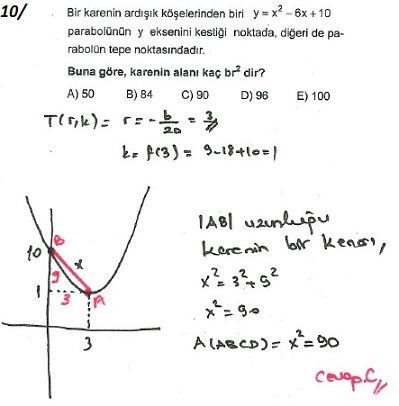 10/
Bir karenin ardışık köşelerinden biri y = x² – 6x + 10
parabolünün y eksenini kestiği noktada, diğeri de pa-
rabolün tepe noktasındadır.
Buna göre, karenin alanı kaç br² dir?
A) 50 B) 84 C) 90 D) 96 E) 100
T(r,k) = r = -b/2a = 3//
k = f(3) = 9-18+10=1
10 B
9 x
1 3 A
3
|AB| uzunluğu
karenin bir kenarı,
x² = 3² + 9²
x² = 90
A(ABCD) = x² = 90
Cevap C//